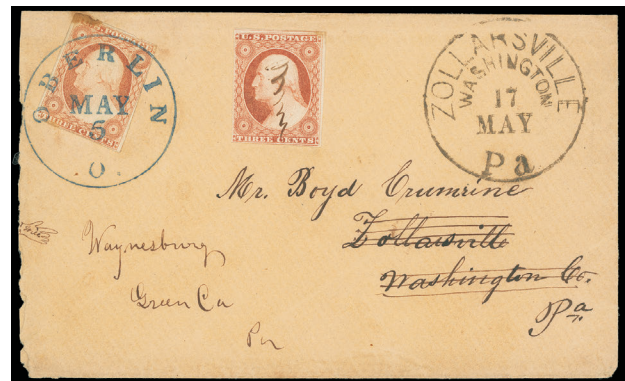 OBERLIN
MAY
5
O.
U.S. POSTAGE
THREE CENTS
U.S. POSTAGE
THREE CENTS
ZOLLARSVILLE
WASHINGTON
17
MAY
Pa
Mr. Boyd Crumrine
Zollarsville
Washington Co.
Pa
Waynesburg
Green Co
Pa